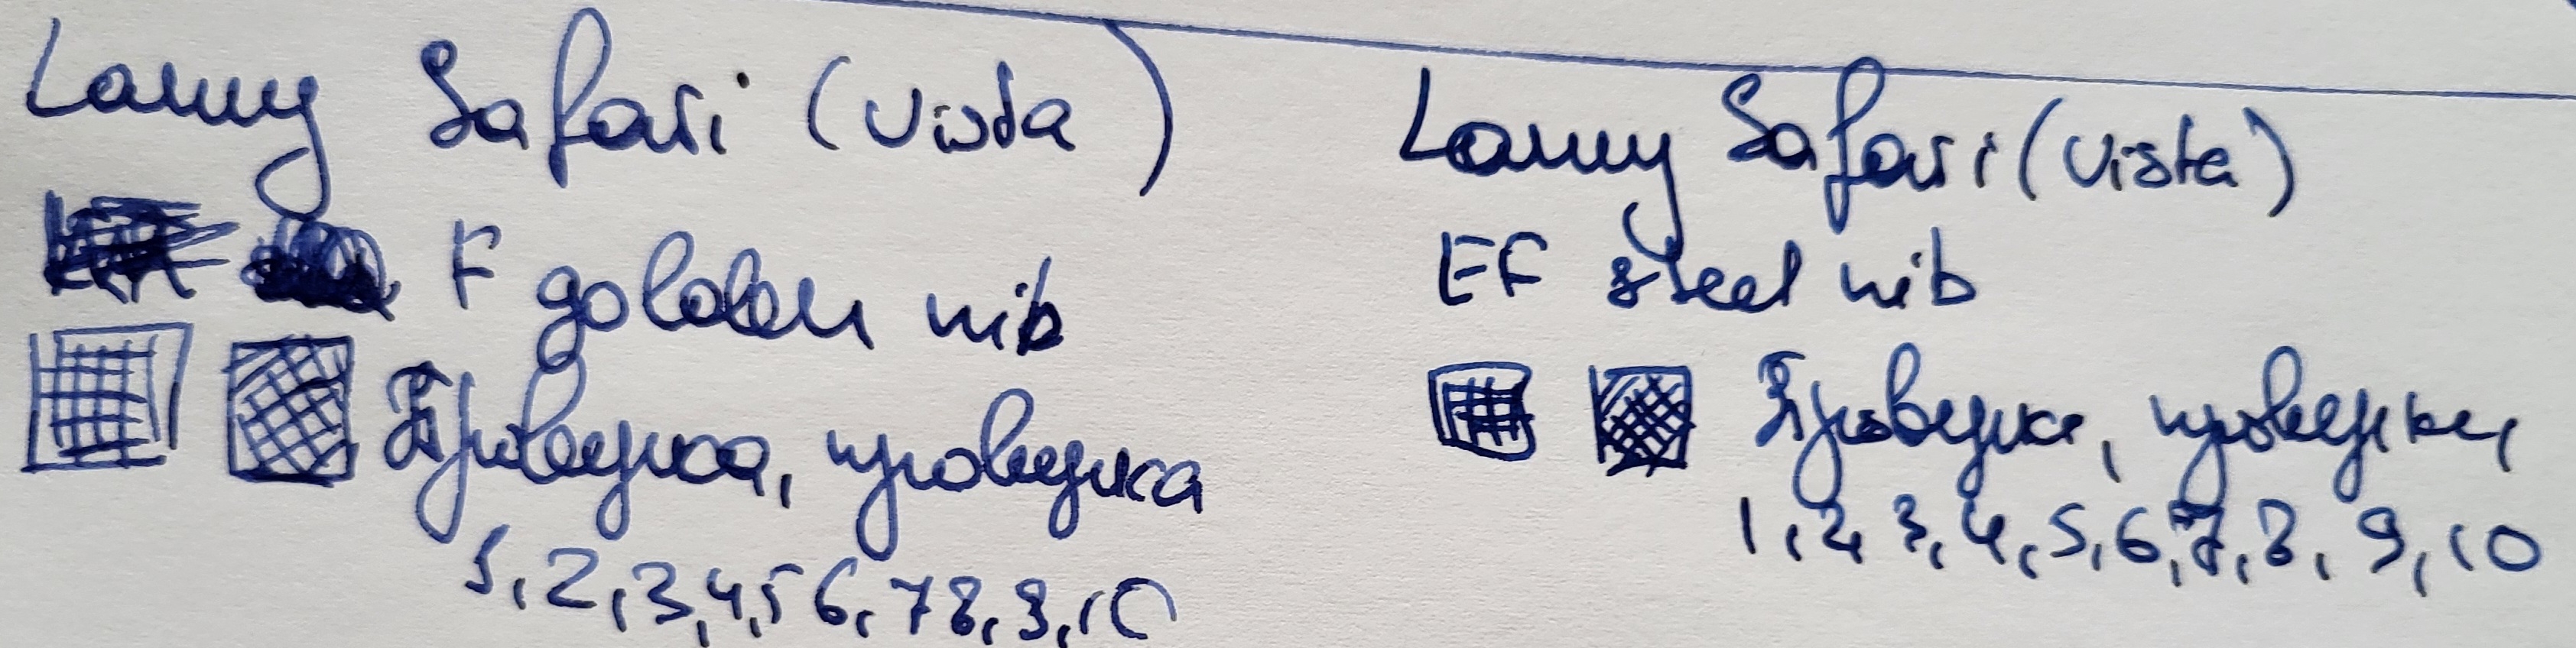 Lamy Safari (Vista)
F golden nib
Проверка, проверка
1, 2, 3, 4, 5 6, 7 8, 9, 10
Lamy Safari (Vista)
EF steel nib
Проверка, проверка,
1, 2, 3, 4, 5, 6, 7, 8, 9, 10